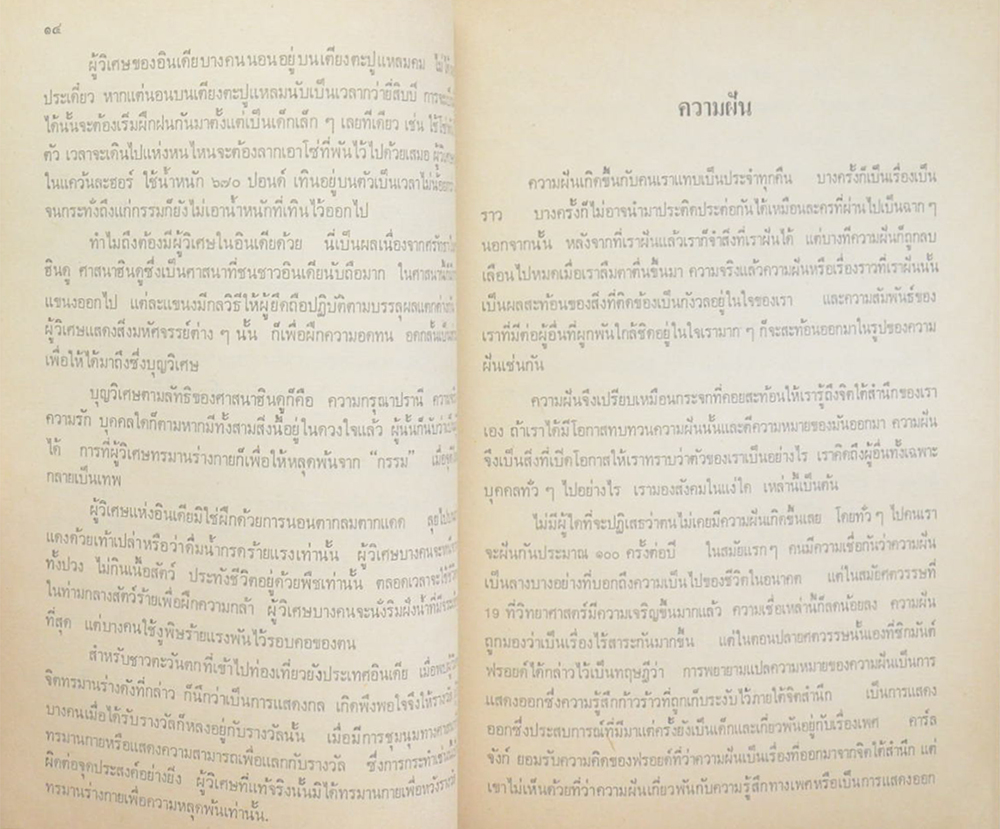 ๑๔
ผู้วิเศษของอินเดียบางคนนอนอยู่บนเตียงตะปูแหลมคม ไม่ใช่
ประเดี๋ยว หากแต่นอนบนเตียงตะปูแหลมนับเป็นเวลากว่ายี่สิบปี การจะ
ได้นั้นจะต้องเริ่มฝึกฝนกันมาตั้งแต่เป็นเด็กเล็ก ๆ เลยทีเดียว เช่น ใช้โซ่
ตัว เวลาจะเดินไปแห่งหนไหนจะต้องลากเอาโซ่ที่พันไว้ไปด้วยเสมอ ผู้วิเศษ
ในแคว้นละฮอร์ ใช้น้ำหนัก ๖๗๐ ปอนด์ เทินอยู่บนตัวเป็นเวลาไม่น้อย
จนกระทั่งถึงแก่กรรมก็ยังไม่เอาน้ำหนักที่เทินไว้ออกไป
ทำไมถึงต้องมีผู้วิเศษในอินเดียด้วย นี่เป็นผลเนื่องจากศรัทธา
ฮินดู ศาสนาฮินดูซึ่งเป็นศาสนาที่ชนชาวอินเดียนับถือมาก ในศาสนานี้
แขนงออกไป แต่ละแขนงมีกลวิธีให้ผู้ยึดถือปฏิบัติตามบรรลุผลแตกต่างกัน
ผู้วิเศษแสดงสิ่งมหัศจรรย์ต่าง ๆ นั้น ก็เพื่อฝึกความอดทน อดกลั้น
เพื่อให้ได้มาถึงซึ่งบุญวิเศษ
บุญวิเศษตามลัทธิของศาสนาฮินดูก็คือ ความกรุณาปรานี
ความรัก บุคคลใดก็ตามหากมีทั้งสามสิ่งนี้อยู่ในดวงใจแล้ว ผู้นั้นก็นับว่า
ได้ การที่ผู้วิเศษทรมานร่างกายก็เพื่อให้หลุดพ้นจาก “กรรม” เมื่อ
กลายเป็นเทพ
ผู้วิเศษแห่งอินเดียมิใช่ฝึกด้วยการนอนตากลมตากแดด ลุยไป
แดงด้วยเท้าเปล่าหรือว่าดื่มน้ำกรดร้ายแรงเท่านั้น ผู้วิเศษบางคนจะ
ทั้งปวง ไม่กินเนื้อสัตว์ ประทังชีวิตอยู่ด้วยพืชเท่านั้น ตลอดเวลาจะใช้ชีวิต
ในท่ามกลางสัตว์ร้ายเพื่อฝึกความกล้า ผู้วิเศษบางคนจะนั่งริมฝั่งน้ำที่มี
ที่สุด แต่บางคนใช้งูพิษร้ายแรงพันไว้รอบคอของตน
สำหรับชาวตะวันตกที่เข้าไปท่องเที่ยวยังประเทศอินเดีย เมื่อพบผู้
จิตทรมานร่างดังที่กล่าว ก็นึกว่าเป็นการแสดงกล เกิดพึงพอใจจึงให้รางวัล
บางคนเมื่อได้รับรางวัลก็หลงอยู่กับรางวัลนั้น เมื่อมีการชุมนุมทางศาสนา
ทรมานกายหรือแสดงความสามารถเพื่อแลกกับรางวัล ซึ่งการกระทำเช่นนี้
ผิดต่อจุดประสงค์อย่างยิ่ง ผู้วิเศษที่แท้จริงนั้นมิได้ทรมานกายเพื่อหวังรางวัล
ทรมานร่างกายเพื่อความหลุดพ้นเท่านั้น.
ความฝัน
ความฝันเกิดขึ้นกับคนเราแทบเป็นประจำทุกคืน บางครั้งก็เป็นเรื่องเป็น
ราว บางครั้งก็ไม่อาจนำมาประติดประต่อกันได้เหมือนละครที่ผ่านไปเป็นฉาก ๆ
นอกจากนั้น หลังจากที่เราฝันแล้วเราก็จำสิ่งที่เราฝันได้ แต่บางทีความฝันก็ถูกลบ
เลือนไปหมดเมื่อเราลืมตาตื่นขึ้นมา ความจริงแล้วความฝันหรือเรื่องราวที่เราฝันนั้น
เป็นผลสะท้อนของสิ่งที่ติดข้องเป็นกังวลอยู่ในใจของเรา และความสัมพันธ์ของ
เราที่มีต่อผู้อื่นที่ผูกพันใกล้ชิดอยู่ในใจเรามาก ๆ ก็จะสะท้อนออกมาในรูปของความ
ฝันเช่นกัน
ความฝันจึงเปรียบเหมือนกระจกที่คอยสะท้อนให้เรารู้ถึงจิตใต้สำนึกของเรา
เอง ถ้าเราได้มีโอกาสทบทวนความฝันนั้นและตีความหมายของมันออกมา ความฝัน
จึงเป็นสิ่งที่เปิดโอกาสให้เราทราบว่าตัวของเราเป็นอย่างไร เราคิดถึงผู้อื่นทั้งเฉพาะ
บุคคลทั่ว ๆ ไปอย่างไร เรามองสังคมในแง่ใด เหล่านี้เป็นต้น
ไม่มีผู้ใดที่จะปฏิเสธว่าตนไม่เคยมีความฝันเกิดขึ้นเลย โดยทั่ว ๆ ไปคนเรา
จะฝันกันประมาณ ๑๐๐ ครั้งต่อปี ในสมัยแรก ๆ คนมีความเชื่อกันว่าความฝัน
เป็นลางบางอย่างที่บอกถึงความเป็นไปของชีวิตในอนาคต แต่ในสมัยศตวรรษที่
19 ที่วิทยาศาสตร์มีความเจริญขึ้นมากแล้ว ความเชื่อเหล่านี้ก็ลดน้อยลง ความฝัน
ถูกมองว่าเป็นเรื่องไร้สาระกันมากขึ้น แต่ในตอนปลายศตวรรษนั้นเองที่ซิกมันด์
ฟรอยด์ได้กล่าวไว้เป็นทฤษฎีว่า การพยายามแปลความหมายของความฝันเป็นการ
แสดงออกซึ่งความรู้สึกก้าวร้าวที่ถูกเก็บระงับไว้ภายใต้จิตสำนึก เป็นการแสดง
ออกซึ่งประสบการณ์ที่มีมาแต่ครั้งยังเป็นเด็กและเกี่ยวพันอยู่กับเรื่องเพศ คาร์ล
จังก์ ยอมรับความคิดของฟรอยด์ที่ว่าความฝันเป็นเรื่องที่ออกมาจากจิตใต้สำนึก แต่
เขาไม่เห็นด้วยที่ว่าความฝันเกี่ยวพันกับความรู้สึกทางเพศหรือเป็นการแสดงออก